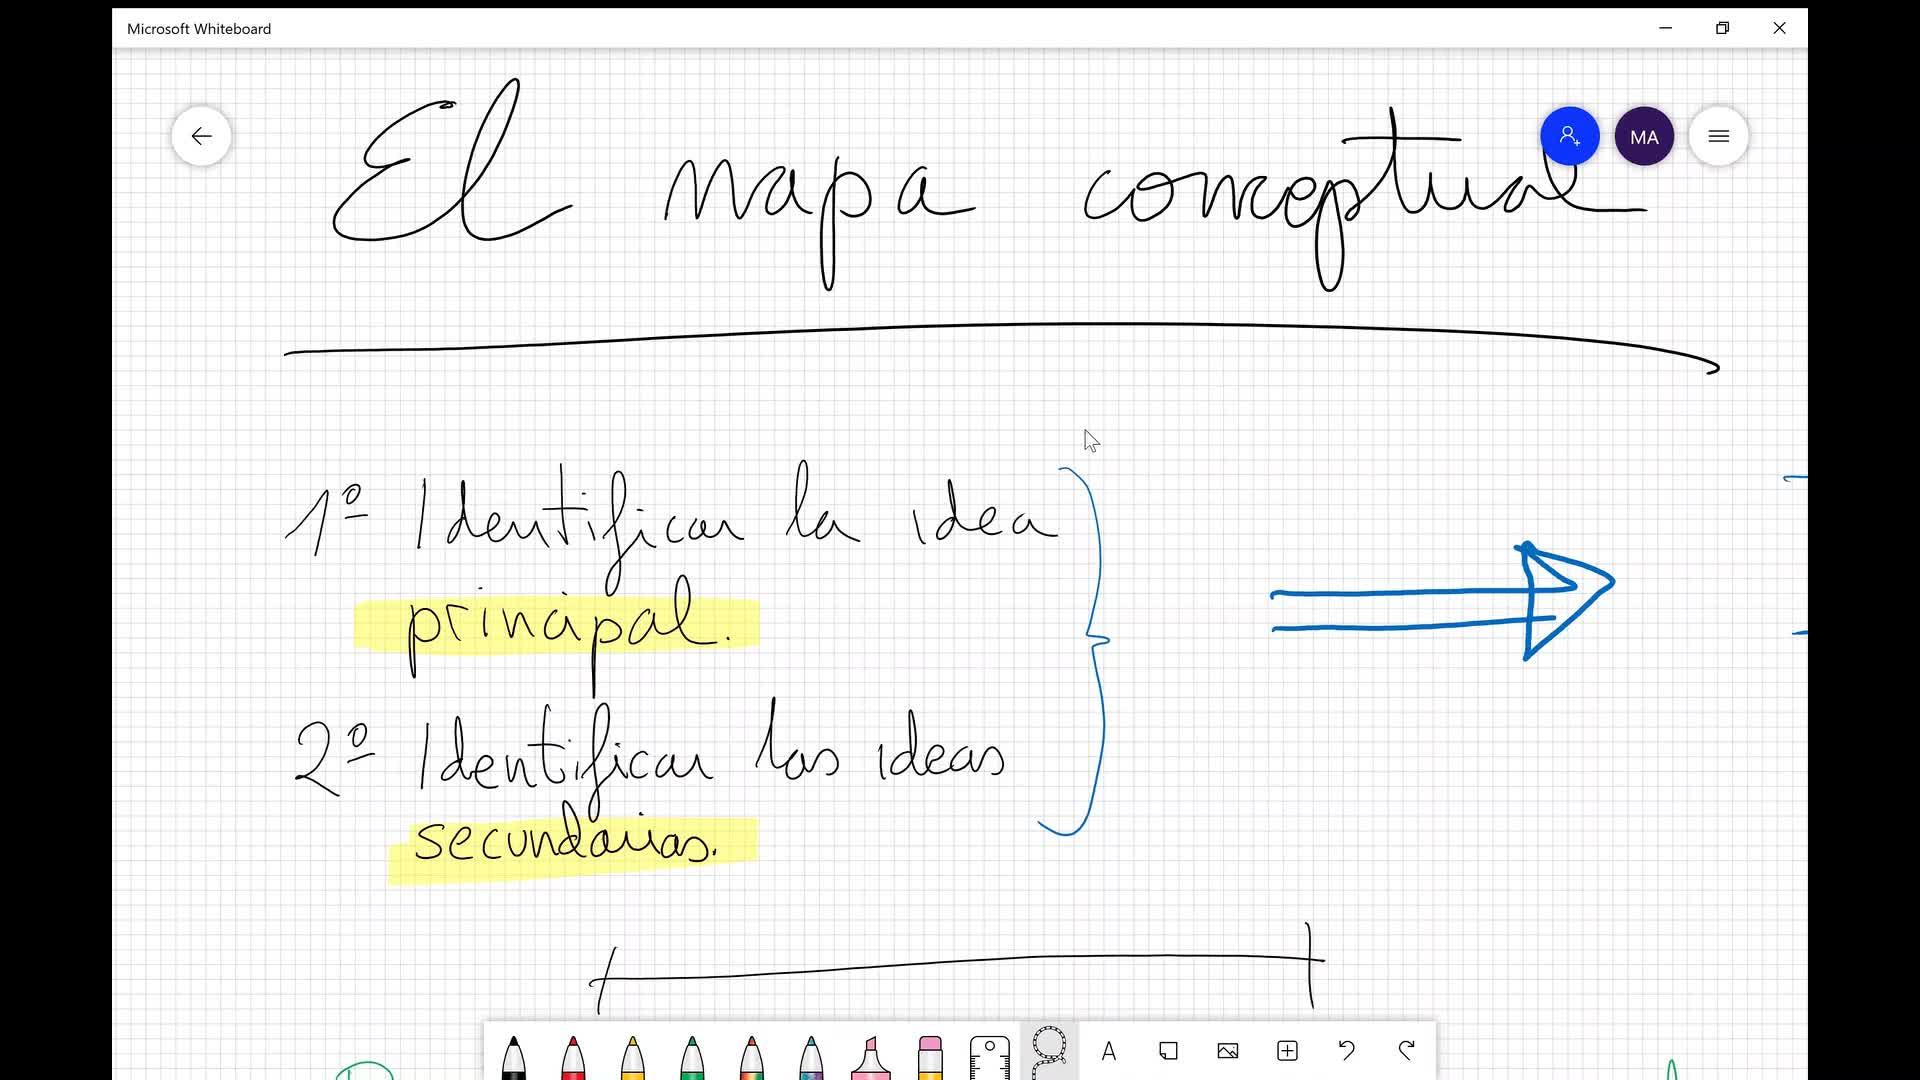 Microsoft Whiteboard
MA
El mapa conceptual
1º Identificar la idea
principal.
2º Identificar las ideas
secundarias.